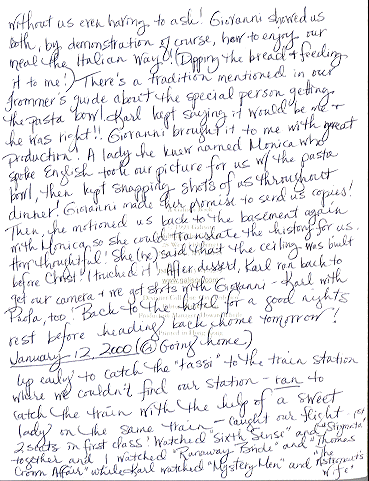 without us even having to ask! Giovanni showed us
both, by demonstration of course, how to enjoy our
meal the Italian way! (Dipping the bread & feeding
it to me!) There's a tradition mentioned in our
Frommer's guide about the special person getting
the pasta bowl. Karl kept saying it would be me &
he was right!! Giovanni brought it to me with great
production! A lady he knew named Monica who
spoke English took our picture for us w/ the pasta
bowl, then kept snapping shots of us throughout
dinner! Giovanni made her promise to send us copies!
Then, he motioned us back to the basement again
with Monica, so she could translate the history for us.
How thoughtful! She (he) said that the ceiling was built
before Christ! I touched it! After dessert, Karl ran back to
get our camera & we got shots with Giovanni - Karl with
Paola, too! Back to the hotel for a good night's
rest before heading back home tomorrow!
January 12, 2000 (Going home)
Up early to catch the "tassi" to the train station
where we couldn't find our station - ran to
catch the train with the help of a sweet
lady on the same train - caught our flight - 1st
2 seats in first class! Watched "Sixth Sense" and
together and I watched "Runaway Bride" and "Thomas
Crown Affair" while Karl watched "Mystery Men" and "The Astronaut's
Wife".